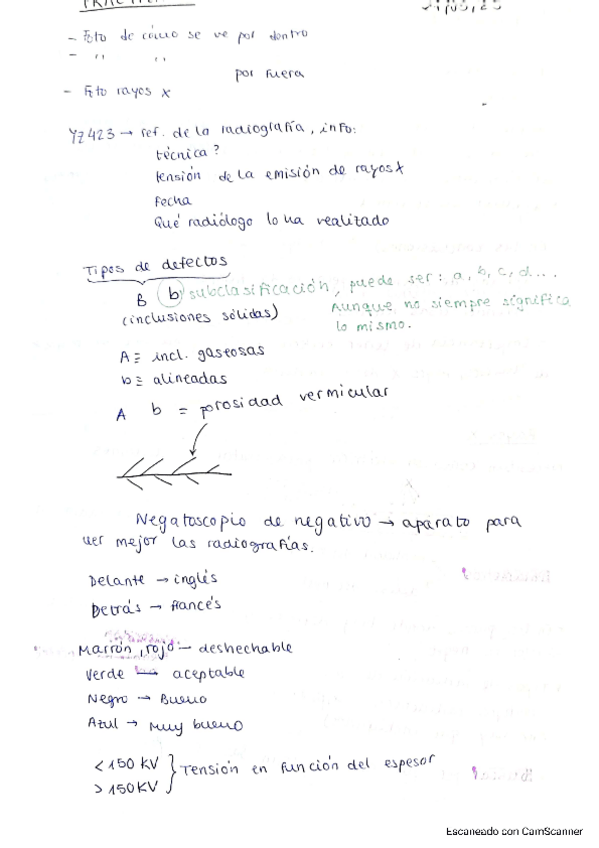 - Foto de cómo se ve por dentro
- " "
por fuera
- Foto rayos x
YZ423 → ref. de la radiografía, info:
técnica?
tensión de la emisión de rayos x
Fecha
Qué radiólogo lo ha realizado
Tipos de defectos
B b subclasificación, puede ser: a, b, c, d...
(inclusiones sólidas) Aunque no siempre significa
lo mismo.
A ≡ incl. gaseosas
b ≡ alineadas
A b = porosidad vermicular
Negatoscopio de negativo → aparato para
ver mejor las radiografías.
Delante → inglés
Detrás → francés
Marrón, rojo → deshechable
Verde → aceptable
Negro → Bueno
Azul → muy bueno
< 150 KV } Tensión en función del espesor
> 150KV
Escaneado con CamScanner